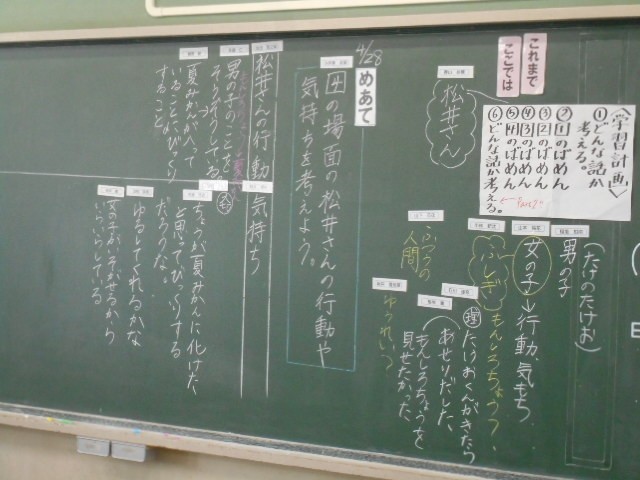 これまで
ここでは
〈学習計画〉
①どんな話か
考える。
②1のばめん
③2のばめん
④3のばめん
⑤4のばめん
⑥どんな話か考える。
(たけのたけお)
男の子
女の子→行動、気もち
ふしぎ
もんしろちょう?
たけおくんがきたら
あせりだした。
もんしろちょうを
見せたかった
ふつうの
人間
ゆうれい?
松井さん
4/28
めあて
4の場面の松井さんの行動や
気持ちを考えよう。
松井さんの行動
気持ち
男の子のことを
そうぞうしてる
夏みかんが入って
いることにびっくり
すること
ちょうが夏みかんに化けた
と思ってびっくりする
だろうな。
ゆるしてくれるかな
女の子がいそがせるから
いらいらしている